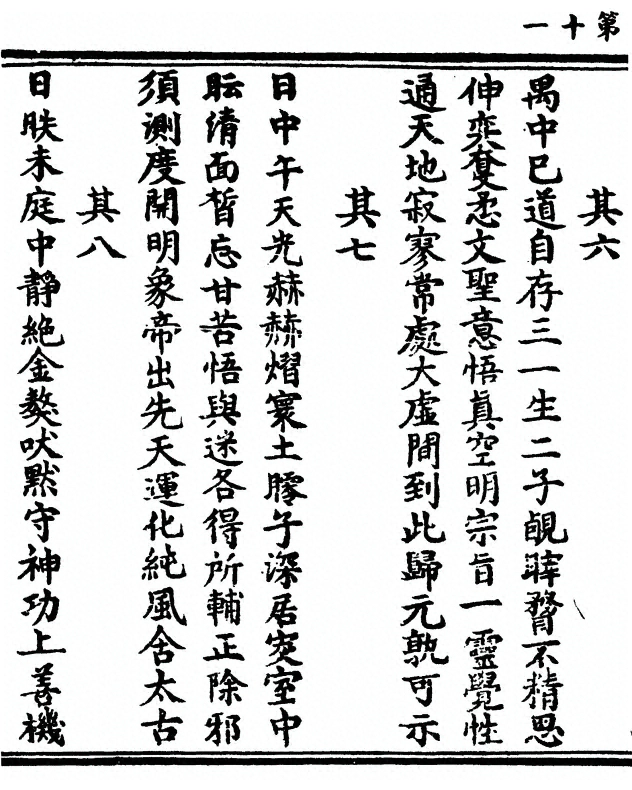 第十一
其六
禺中巳道自存三一生二子覩暐瞀不精思
伸奕奪悉文聖意悟真空明宗旨一靈覺性
通天地寂寥常處大虛間到此歸元孰可示
其七
日中午天光赫赫熠寰土朦子深居突室中
眩倩面晳忘甘苦悟與迷各得所輔正除邪
須測度開明象帝出先天運化純風舍太古
其八
日昳未庭中靜絶金獒吠默守神功上善機